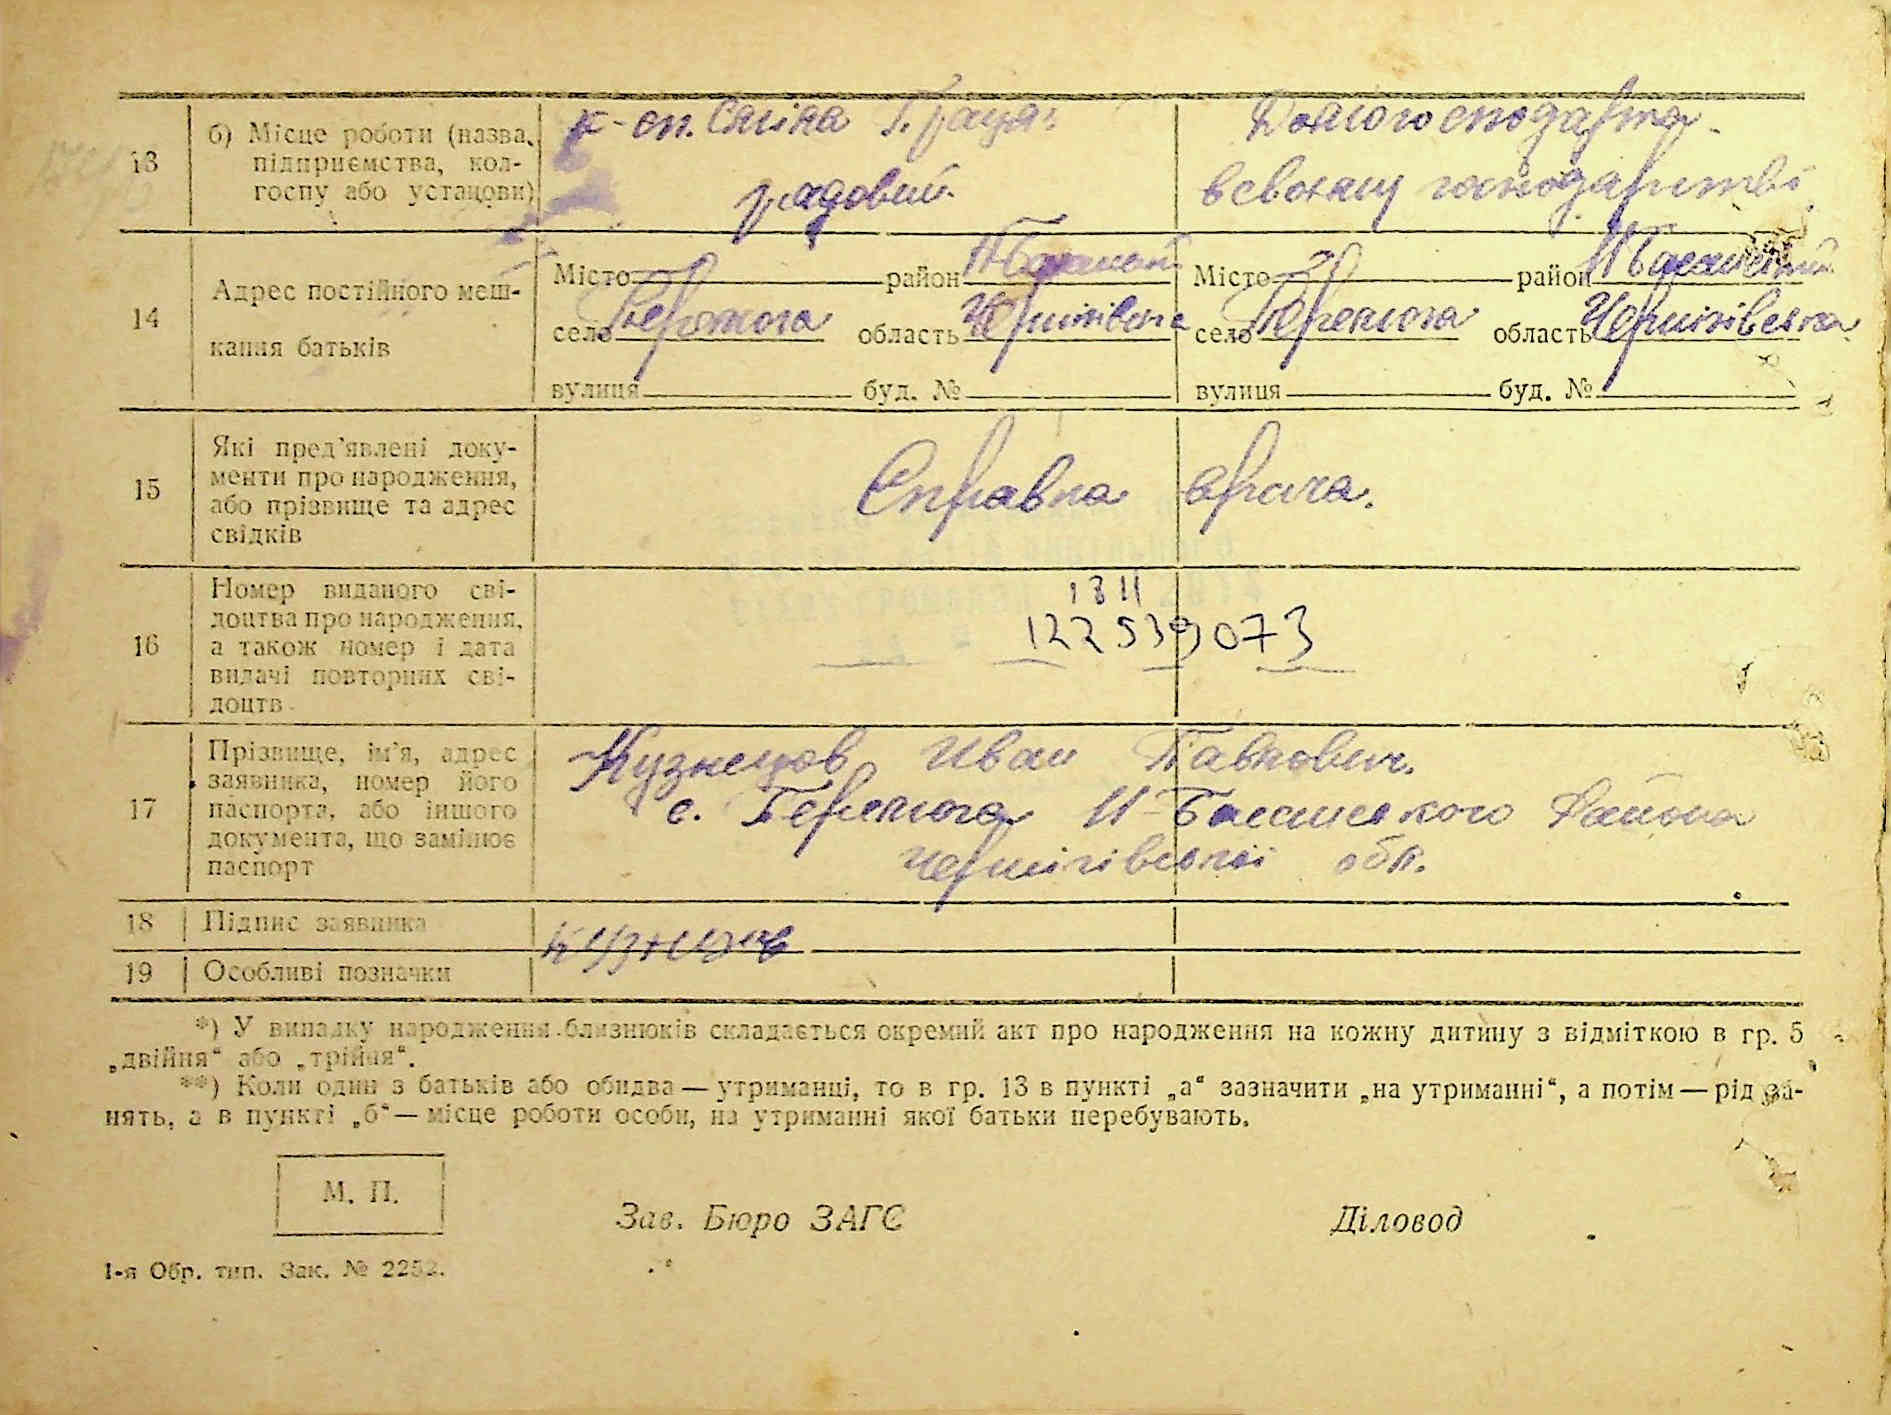 13
б) Місце роботи (назва
підприємства, кол-
госпу або установи)
к-сп. Сталіна
рядовий
Домогосподарка
в своєму господарстві
14
Адрес постійного меш-
кання батьків
Місто район Н Басанський
село Перемога область Чернігівська
вулиця буд. №
Місто район Н Басанський
село Перемога область Чернігівська
вулиця буд. №
15
Які пред'явлені доку-
менти про народження,
або прізвище та адрес
свідків
Справка врача.
16
Номер виданого сві-
доцтва про народження,
а також номер і дата
видачі повторних сві-
доцтв
1311
122539073
17
Прізвище, ім'я, адрес
заявника, номер його
паспорта, або іншого
документа, що замінює
паспорт
Кузнецов Иван Павлович.
с. Перемога Н-Басанського Району
Чернігівської обл.
18
Підпис заявника
Кузнецов
19
Особливі позначки
*) У випадку народження близнюків складається окремий акт про народження на кожну дитину з відміткою в гр. 5
„двійня“ або „трійня“.
**) Коли один з батьків або обидва — утриманці, то в гр. 13 в пункті „а“ зазначити „на утриманні“, а потім — рід за-
нять, а в пункті „б“ — місце роботи особи, на утриманні якої батьки перебувають.
М. П.
Зав. Бюро ЗАГС
Діловод
1-я Обр. тип. Зак. № 2252.